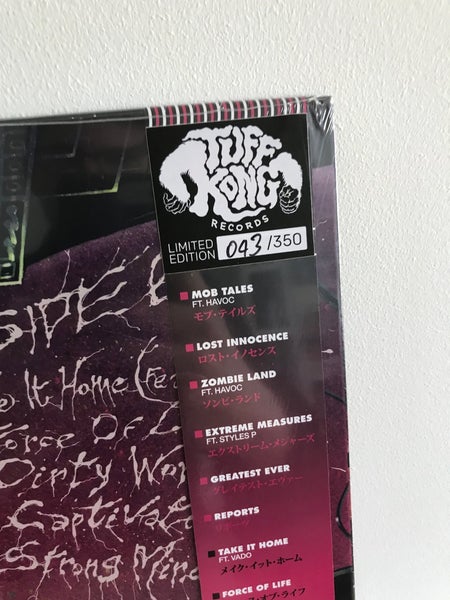 TUFF
KONG
RECORDS
LIMITED
EDITION 043/350
MOB TALES
FT. HAVOC
モブ・テイルズ
LOST INNOCENCE
ロスト・イノセンス
ZOMBIE LAND
FT. HAVOC
ゾンビ・ランド
EXTREME MEASURES
FT. STYLES P
エクストリーム・メジャーズ
GREATEST EVER
グレイテスト・エヴァー
REPORTS
TAKE IT HOME
FT. VADO
メイク・イット・ホーム
FORCE OF LIFE
オブ・ライフ
SIDE
It Home (fe
Force Of
Dirty Wor
Captivat
Strong Mind